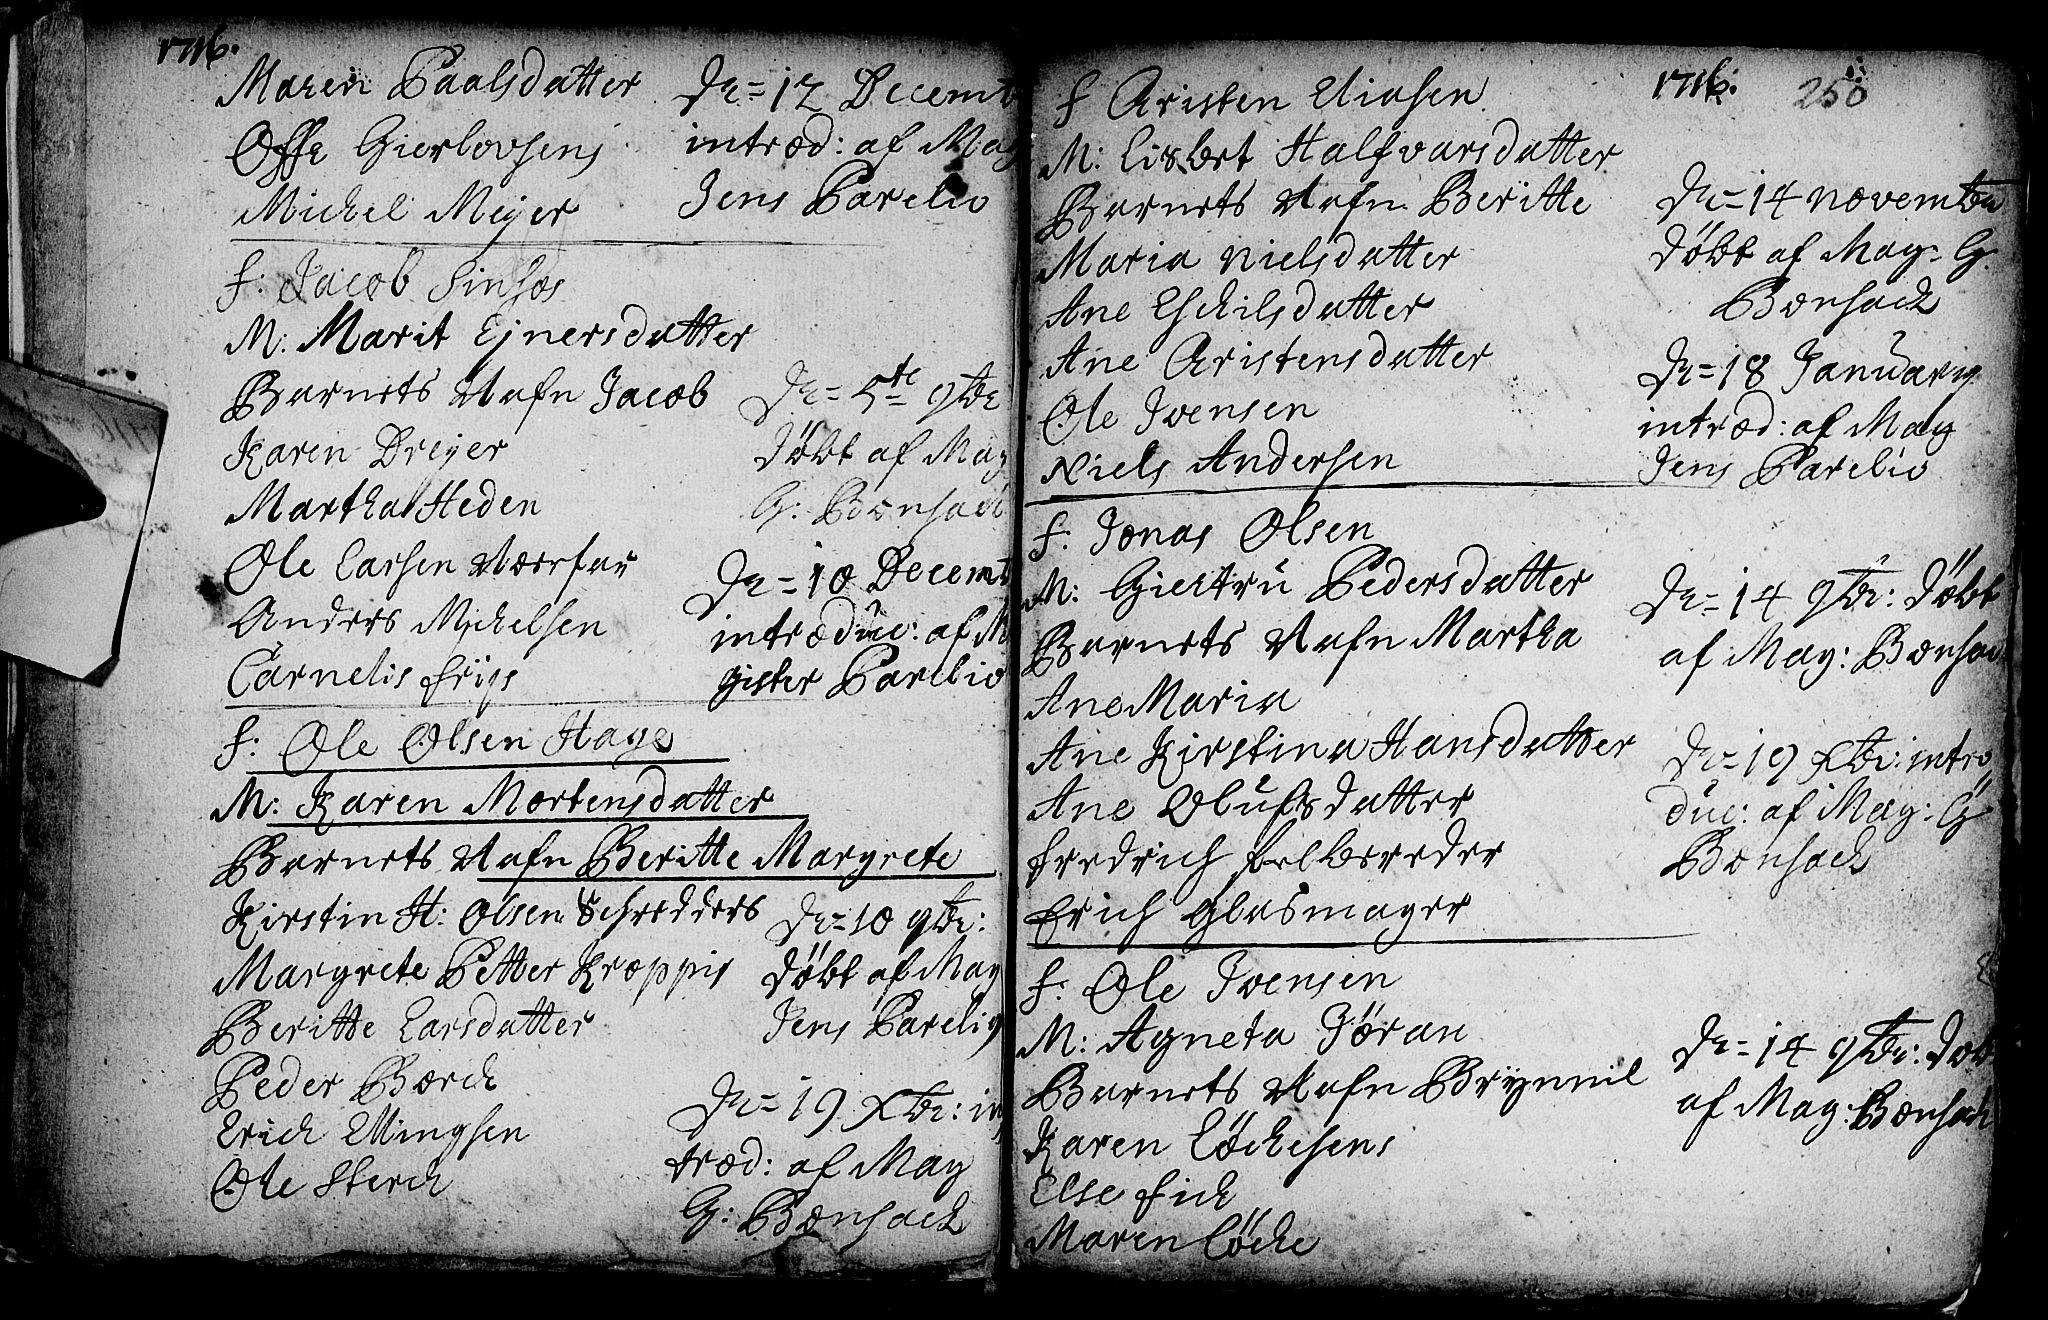 1716.
Maren Paalsdatter
Offe Gierlovsens
Michel Meyer
Dn = 12 Decemb
introd: af Mag
Jens Parelio
F: Jacob
M: Marit Ejnersdatter
Barnets Nafn Jacob
Karen Dreyer
Martha Heden
Ole Larsen
Anders Michelsen
Carnelis friis
Dn = 5te 9br
Döbt af Mag
G: Bonsack
Dn = 10 Decemb
introduc: af M
gister Parelio
F: Ole Olsen Hage
M: Karen Mortensdatter
Barnets Nafn Beritte Margrete
Kirstin H: Olsen Schredders
Margrete Petter Kroppis
Beritte Larsdatter
Peder Borck
Erich Ellingsen
Ole Sterck
Dn = 10 9br:
Döbt af Mag
Jens Parelio
Dn = 19 Xbr: in
trod: af Mag
G: Bonsack
1716. 250
F Cristen Eliasen
M: Lisbet Halfvarsdatter
Barnets Nafn Beritte
Maria Nielsdatter
Ane Eschilsdatter
Ane Cristensdatter
Ole Ivensen
Niels Andersen
Dn = 14 november
Döbt af Mag: G.
Bonsack
Dn = 18 Januarij
introd: af Mag
Jens Parelio
F: Jonas Olsen
M: Giertru Pedersdatter
Barnets Nafn Martha
Ane Maria
Ane Kirstina Hansdatter
Ane Olufsdatter
Fredrich felbereder
Erich Glasmager
Dn = 14 9br: Döbt
af Mag: Bonsac
Dn = 19 Xbr: intro
duc: af Mag: G
Bonsack
F: Ole Ivensen
M: Agneta Jöran
Barnets Nafn Brynnil
Karen Löchesens
Else Fich
Maren Löche
Dn = 14 9br: Döb
af Mag: Bonsack